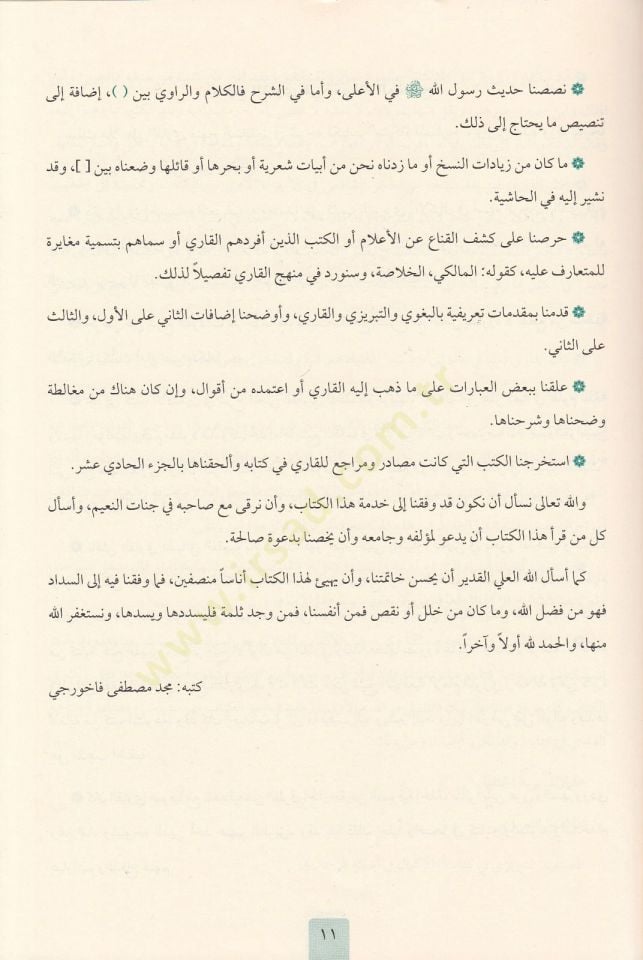 نصصنا حديث رسول الله ﷺ في الأعلى، وأما في الشرح فالكلام والراوي بين ( )، إضافة إلى
تنصيص ما يحتاج إلى ذلك.
ما كان من زيادات النسخ أو ما زدناه نحن من أبيات شعرية أو بحرها أو قائلها وضعناه بين [ ]، وقد
نشير إليه في الحاشية.
حرصنا على كشف القناع عن الأعلام أو الكتب الذين أفردهم القاري أو سماهم بتسمية مغايرة
للمتعارف عليه، كقوله: المالكي، الخلاصة، وسنورد في منهج القاري تفصيلاً لذلك.
قدمنا بمقدمات تعريفية بالبغوي والتبريزي والقاري، وأوضحنا إضافات الثاني على الأول، والثالث
على الثاني.
علقنا ببعض العبارات على ما ذهب إليه القاري أو اعتمده من أقوال، وإن كان هناك من مغالطة
وضحناها وشرحناها.
استخرجنا الكتب التي كانت مصادر ومراجع للقاري في كتابه وألحقناها بالجزء الحادي عشر.
والله تعالى نسأل أن نكون قد وفقنا إلى خدمة هذا الكتاب، وأن نرقى مع صاحبه في جنات النعيم، وأسأل
كل من قرأ هذا الكتاب أن يدعو لمؤلفه وجامعه وأن يخصنا بدعوة صالحة.
كما أسأل الله العلي القدير أن يحسن خاتمتنا، وأن يهيئ لهذا الكتاب أناساً منصفين، فما وفقنا فيه إلى السداد
فهو من فضل الله، وما كان من خلل أو نقص فمن أنفسنا، فمن وجد ثلمة فليسددها ويسدها، ونستغفر الله
منها، والحمد لله أولاً وآخراً.
كتبه: مجد مصطفى فاخورجي
www.irsad.com.tr
١١